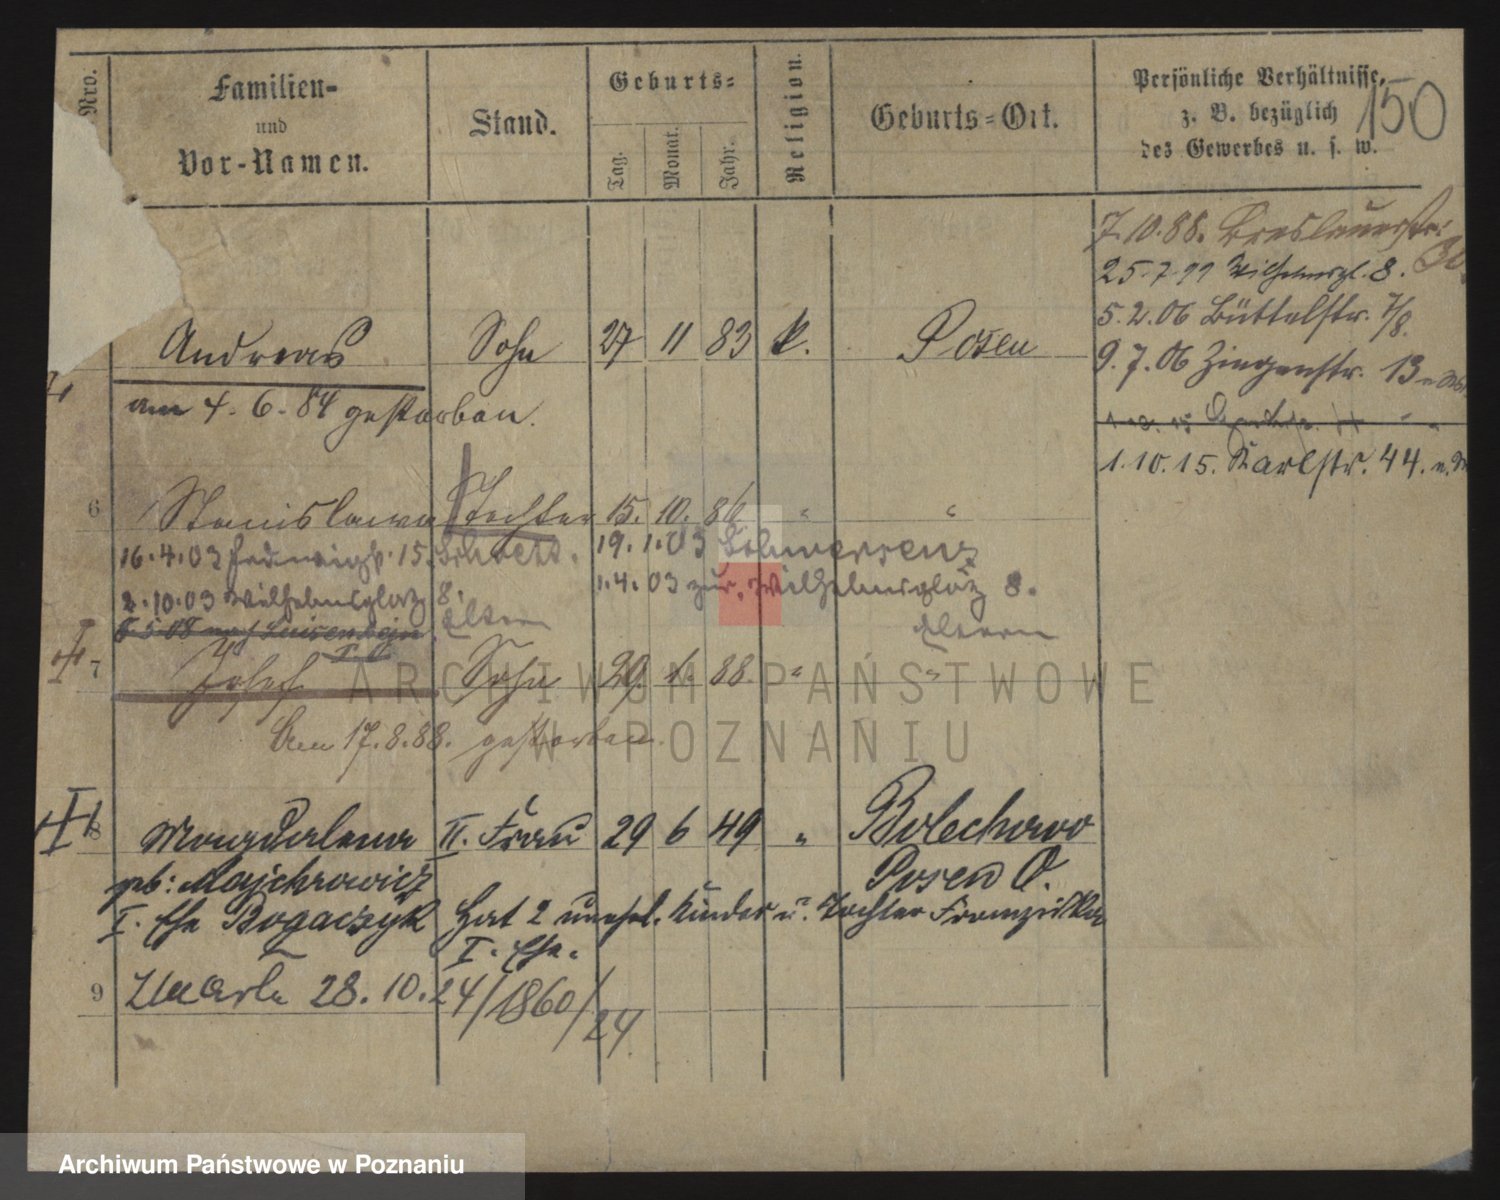 Nro.
Familien-
und
Vor-Namen.
Stand.
Geburts-
Tag.
Monat.
Jahr.
Religion.
Geburts-Ort.
Persönliche Verhältnisse,
z. B. bezüglich
des Gewerbes u. s. w.
150
7.10.88. Breslauerstr. 30.
25.7.99 Wilhelmspl. 8.
5.2.06 Büttelstr. 7/8.
Andreas Sohn 27 11 83 k. Posen
9.7.06 Ziegenstr. 13
am 4.6.84 gestorben.
1.10.15. Karlstr. 44.
6 Stanislawa Tochter 15. 10. 86 " "
16.4.03 Hedwigstr. 15. 19.1.03 Schwersenz
2.10.03 Wilhelmsplatz 8. 1.4.03 zur. Wilhelmsplatz 8.
Eltern Eltern
7 Josef Sohn 29. 88. " "
Am 17.8.88. gestorben.
ARCHIWUM PAŃSTWOWE
W POZNANIU
8 Magdalena II. Frau 29 6 49 " Bolechowo
geb: Majchrowicz Posen O.
I. Ehe Bogaczyk Hat 2 unehel. Kinder u. Tochter Franziska
I. Ehe.
9 28.10.24/1860/24
Archiwum Państwowe w Poznaniu